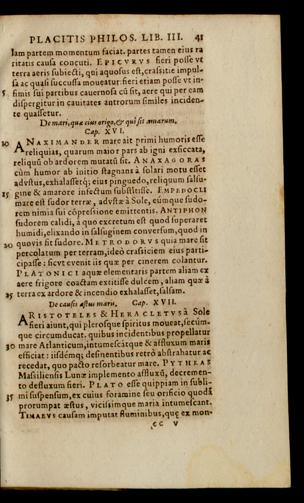 PLACITIS PHILOS. LIB. III. 41
lam partem momentum faciat. partes tamen eius ra
ritatis causa concuti. EPICVRVS fieri posse vt
terra aeris subiecti, qui aquosus est, crassitie impul-
sa ac quasi succussa moueatur: fieri etiam posse vt in-
5 fimis sui partibus cauernosa cū sit, aere qui per eam
dispergitur in cauitates antrorum similes inciden-
te quassetur.
De mari, quæ eius origo, & qui sit amarum.
Cap. XVI.
10 ANAXIMANDER mare ait primi humoris esse
reliquias, quarum maior pars ab igni exsiccata,
reliquū ob ardorem mutatū sit. ANAXAGORAS
cùm humor ab initio stagnans à solari motu esset
adustus, exhalassetq; eius pinguedo, reliquum salsu-
15 gine & amarore infectum substitisse. EMPEDOCLI
mare est sudor terræ, adustæ à Sole, eúmque sudo-
rem nimia sui cōpressione emittentis. ANTIPHON
sudorem calidi, à quo excretum est quod superaret
humidi, elixando in salsuginem conversum, quod in
20 quouis sit sudore. METRODORVS quia mare sit
percolatum per terram, ideò crassitiem eius parti-
cipasse: sicvt evenit iis quæ per cinerem colantur.
PLATONICI aquæ elementaris partem aliam ex
aere frigore coactam extitisse dulcem, aliam quæ à
25 terra ex ardore & incendio exhalasset, salsam.
De causis æstus maris. Cap. XVII.
ARISTOTELES & HERACLETVS à Sole
fieri aiunt, qui plerosque spiritus moueat, secúm-
que circumducat. quibus incidentibus propellatur
30 mare Atlanticum, intumescátque & affluxum maris
efficiat: iisdémq; desinentibus retrò abstrahatur ac
recedat, quo pacto resorbeatur mare. PYTHEAS
Massiliensis Lunæ implemento affluxū, decremen-
to defluxum fieri. PLATO esse quippiam in subli-
35 mi suspensum, ex cuius foramine seu orificio quodā
prorumpat æstus, vicissimque maria intumescant.
TIMAEVS causam imputat fluminibus, quæ ex mon-
cc v